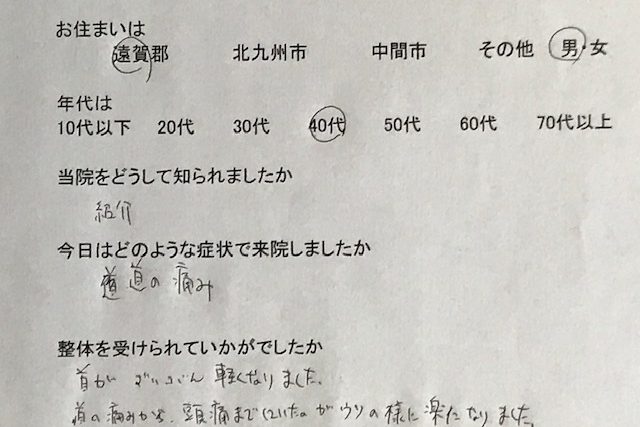 お住まいは
遠賀郡 北九州市 中間市 その他 男・女
年代は
10代以下 20代 30代 40代 50代 60代 70代以上
当院をどうして知られましたか
紹介
今日はどのような症状で来院しましたか
首の痛み
整体を受けられていかがでしたか
首が ずいぶん 軽くなりました。
首の痛みから、頭痛までしていたのがウソの様に楽になりました。